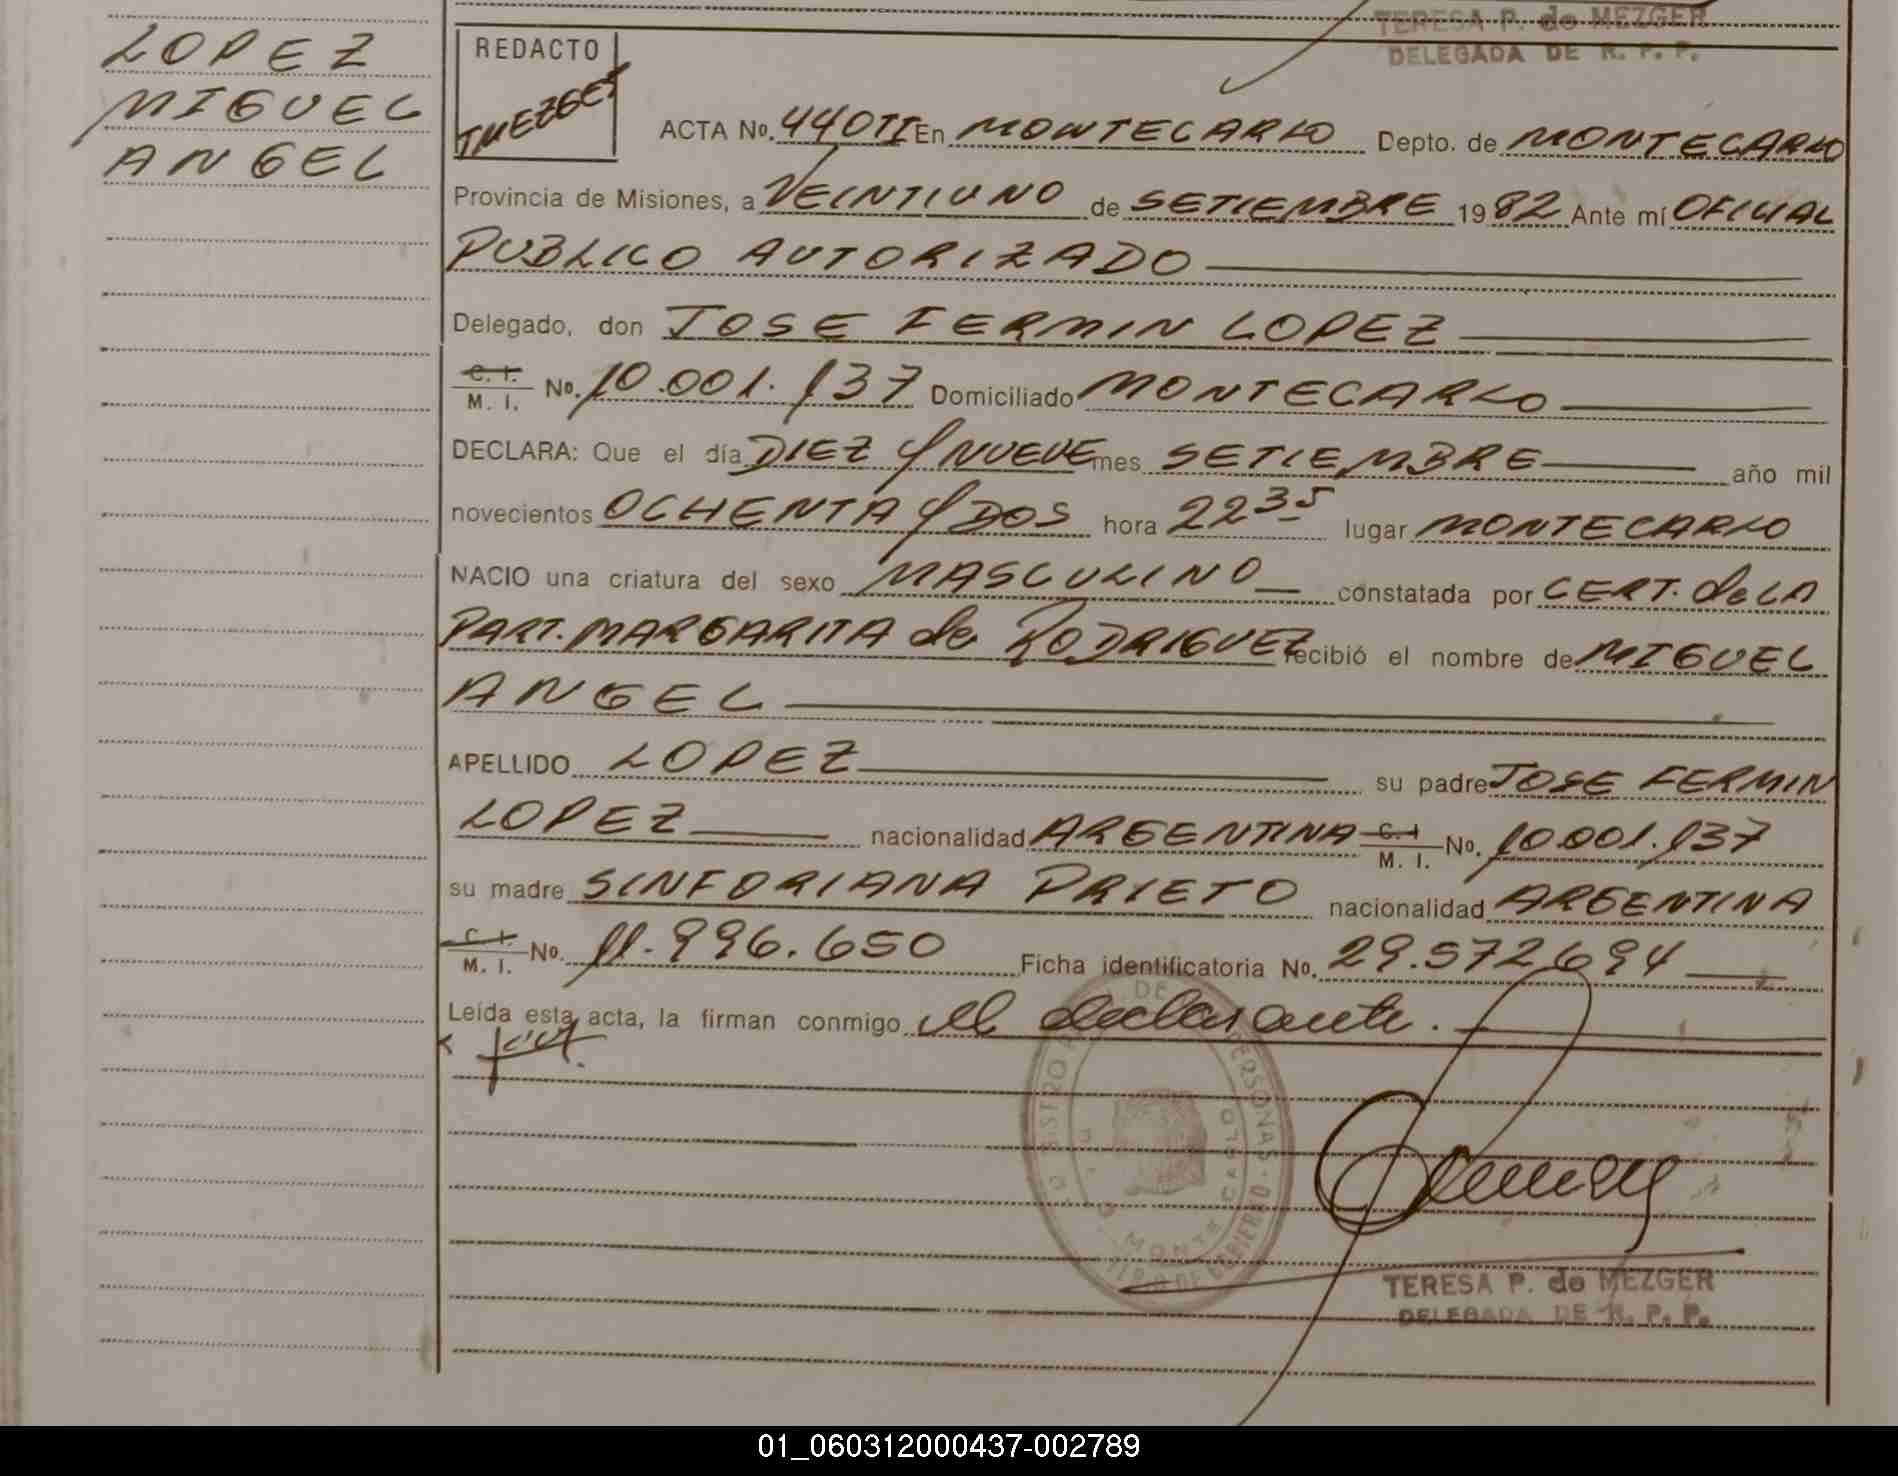 TERESA P. de MEZGER
DELEGADA DE R. P. P.
LOPEZ
MIGUEL
ANGEL
REDACTO
TMEZGER
ACTA No. 440 TI En MONTECARLO Depto. de MONTECARLO
Provincia de Misiones, a VEINTIUNO de SETIEMBRE 1982 Ante mí OFICIAL
PUBLICO AUTORIZADO
Delegado, don JOSE FERMIN LOPEZ
C. I. / M. I. No. 10.001.137 Domiciliado MONTECARLO
DECLARA: Que el día DIEZ y NUEVE mes SETIEMBRE año mil
novecientos OCHENTA y DOS hora 22 35 lugar MONTECARLO
NACIO una criatura del sexo MASCULINO constatada por CERT. de LA
PART. MARGARITA de RODRIGUEZ recibió el nombre de MIGUEL
ANGEL
APELLIDO LOPEZ su padre JOSE FERMIN
LOPEZ nacionalidad ARGENTINA C. I / M. I. No. 10.001.137
su madre SINFORIANA PRIETO nacionalidad ARGENTINA
C. I. / M. I. No. 11.996.650 Ficha identificatoria No. 29.572694
Leída esta acta, la firman conmigo el declarante.
DE PERSONAS
MONTE CARLO
TERESA P. de MEZGER
DELEGADA DE R. P. P.
01_060312000437-002789